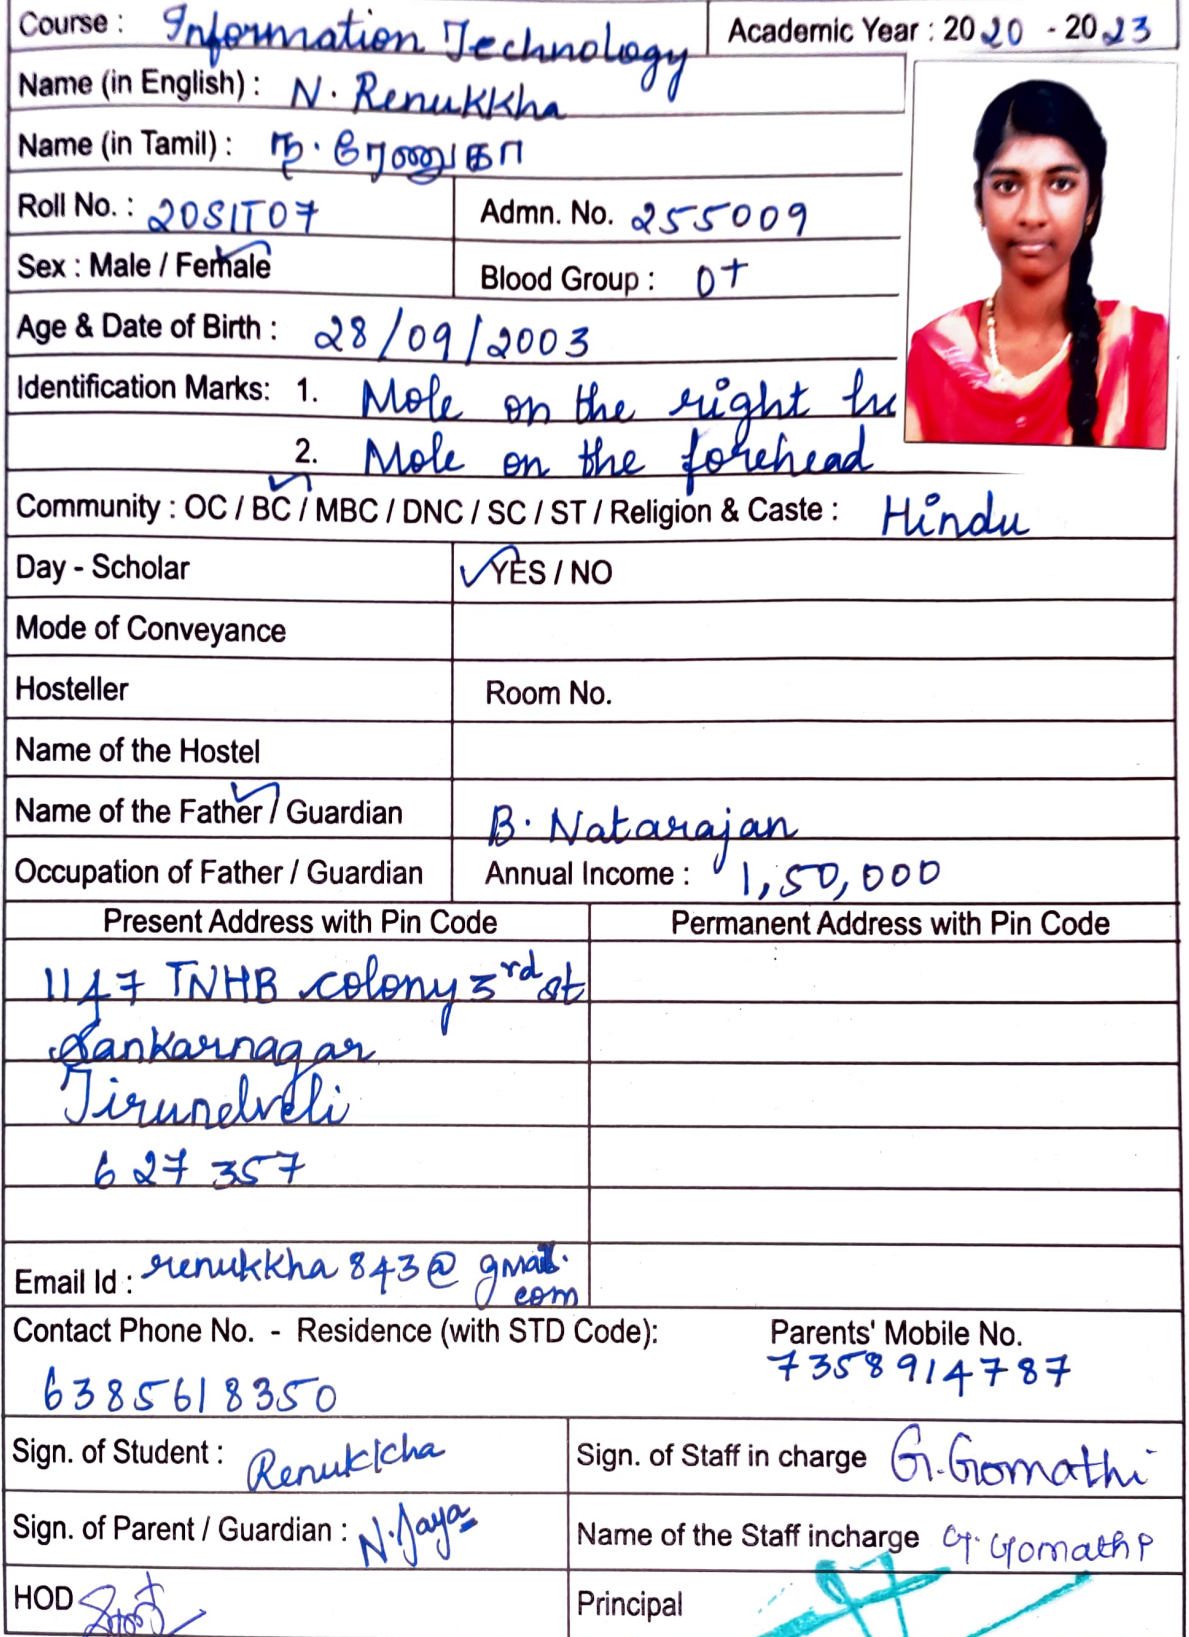 Course : Information Technology Academic Year : 2020 - 2023
Name (in English) : N. Renukkha
Name (in Tamil) : ந. ரேணுகா
Roll No. : 20SIT07 Admn. No. 255009
Sex : Male / Female Blood Group : O+
Age & Date of Birth : 28/09/2003
Identification Marks: 1. Mole on the right
2. Mole on the forehead
Community : OC / BC / MBC / DNC / SC / ST / Religion & Caste : Hindu
Day - Scholar YES / NO
Mode of Conveyance
Hosteller Room No.
Name of the Hostel
Name of the Father / Guardian B. Natarajan
Occupation of Father / Guardian Annual Income : 1,50,000
Present Address with Pin Code Permanent Address with Pin Code
1147 TNHB colony 3rd st
Sankarnagar
Tirunelveli
627 357
Email Id : renukkha843@gmail.
com
Contact Phone No. - Residence (with STD Code): Parents' Mobile No.
6385618350 7358914787
Sign. of Student : Renukkha Sign. of Staff in charge G. Gomathi
Sign. of Parent / Guardian : N. Jaya Name of the Staff incharge G. Gomathi
HOD Principal